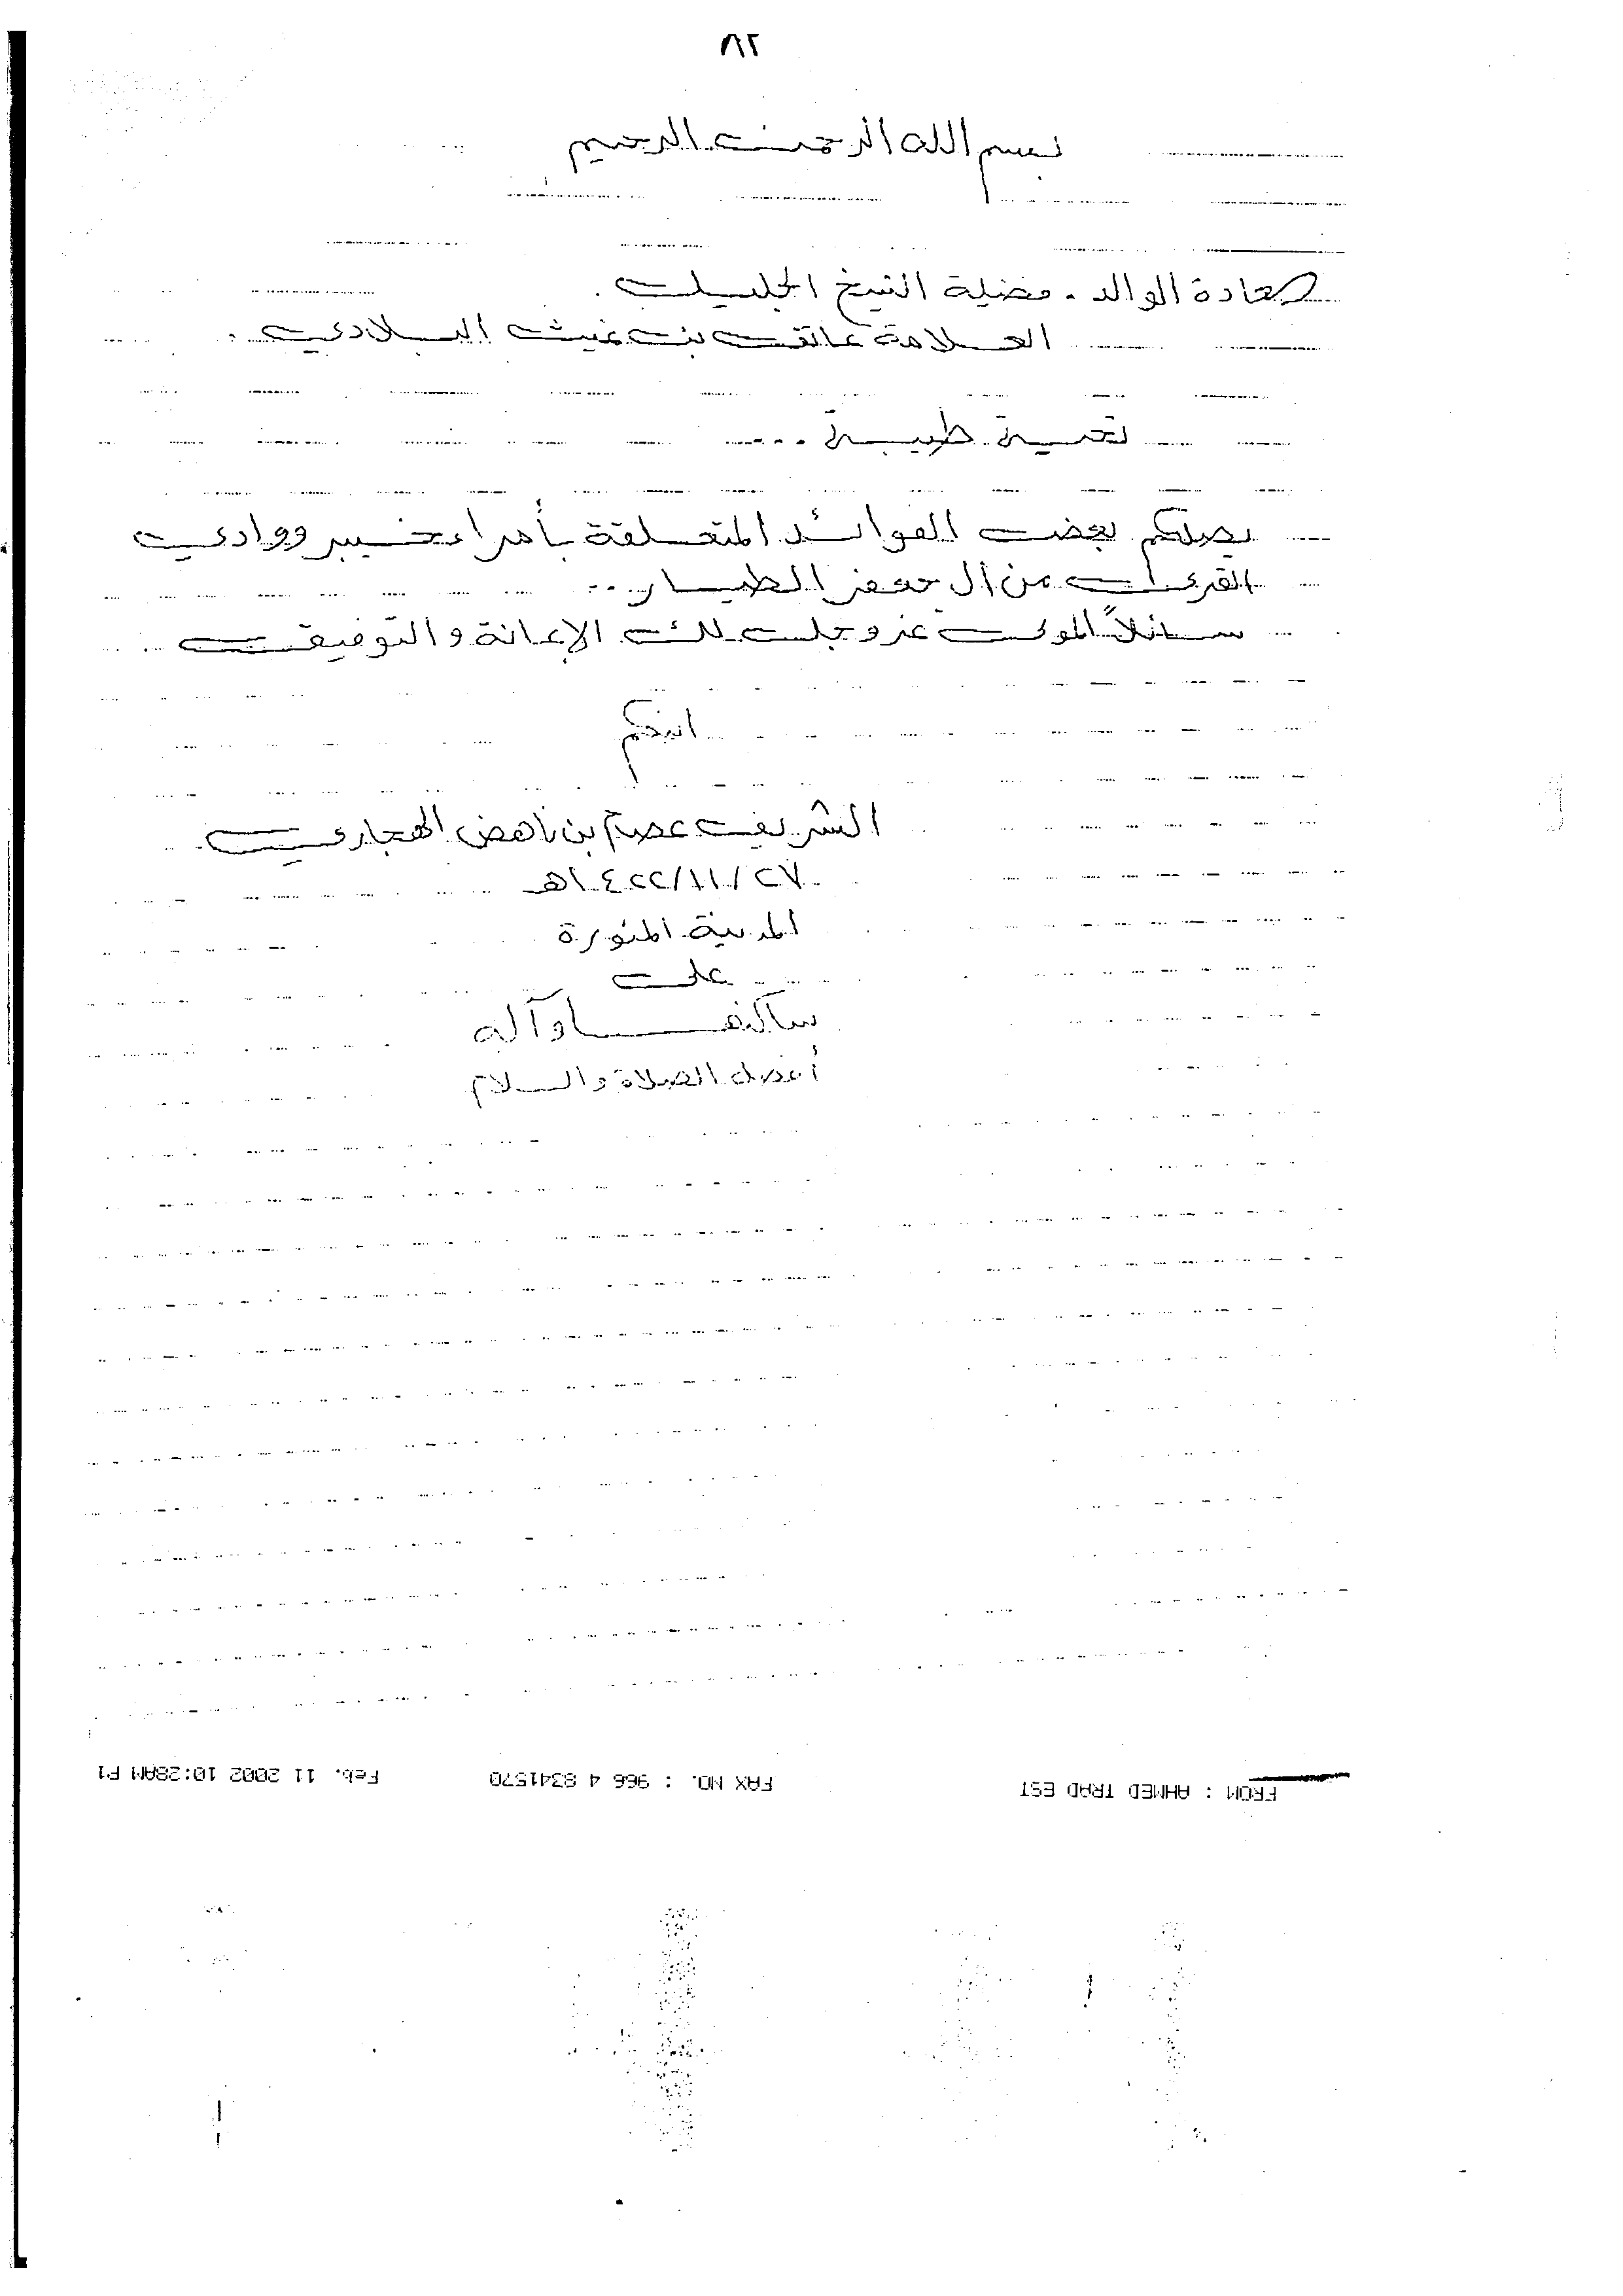 ٨٢
بسم الله الرحمن الرحيم
سعادة الوالد . فضيلة الشيخ الجليل .
العلامة عاتق بن غيث البلادي .
تحية طيبة ...
يصلكم بعض الفوائد المتعلقة بأمراء خيبر ووادي
القرى من آل جعفر الطيار ..
سائلاً المولى عز وجل لك الإعانة والتوفيق ..
ابنكم
الشريف عصام بن ناهض الهجاري
٢٧/١١/١٤٢٢هـ
المدينة المنورة
على
ساكنها وآله
أفضل الصلاة والسلام
FROM : AHMED TRAD EST FAX NO. : 966 4 8341570 Feb. 11 2002 10:28AM P1